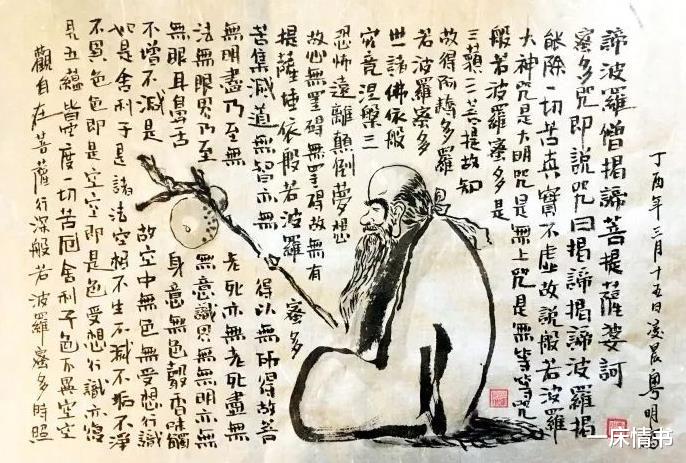 觀自在菩薩行深般若波羅蜜多時照
見五蘊皆空度切苦厄舍利子色不異空空
不異色色即是空空即是色受想行識亦復
如是舍利子是諸法空相不生不滅不垢不淨
不增不減是故空中無色無受想行識
無眼耳鼻舌身意無色聲香味觸
法無眼界乃至無意識界無無明亦無
無明盡乃至無老死亦無老死盡無
苦集滅道無智亦無得以無所得故菩
提薩埵依般若波羅蜜多
故心無罣礙無罣礙故無有
恐怖遠離顛倒夢想
究竟涅槃三
世諸佛依般
若波羅蜜多
故得阿耨多羅
三藐三菩提故知
般若波羅蜜多是
大神咒是大明咒是無上咒是無等等咒
能除一切苦真實不虛故説般若波羅
蜜多咒即説咒曰揭諦揭諦波羅揭
諦波羅僧揭諦菩提薩婆訶
丁酉年三月十五日凌晨粵明
一床情书